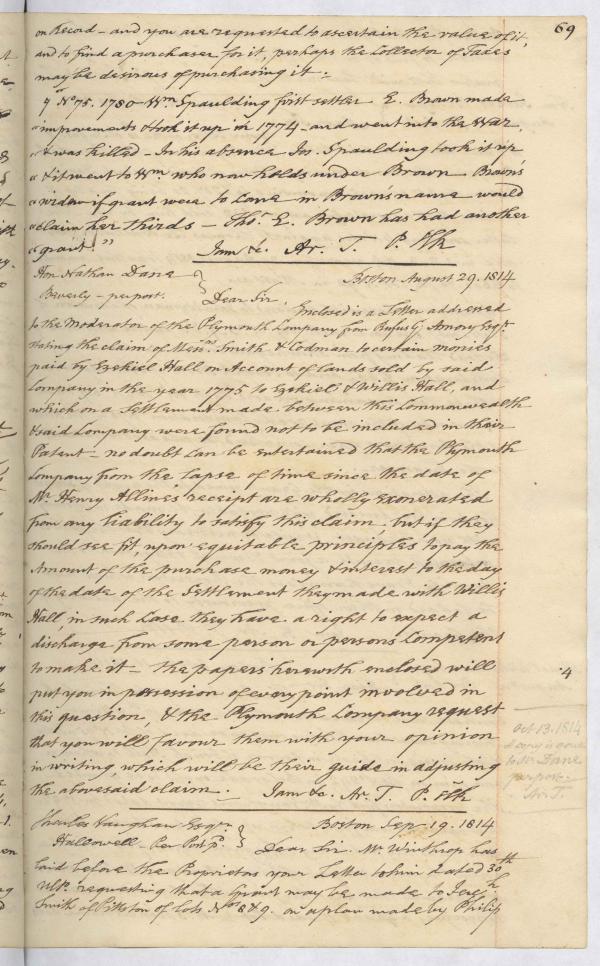 69
on Record - and you are requested to ascertain the value of it,
and to find a purchaser for it, perhaps the Collector of Taxes
may be desirous of purchasing it.
No 75. 1780 Wm Spaulding first settler E. Brown made
"improvements & took it up in 1774 - and went into the War,
"& was killed - In his absence Jos. Spaulding took it up
"& it went to Wm. who now holds under Brown Brown's
"widow if grant were to come in Brown's name would
"claim her thirds - Thos. E. Brown has had another
"grant."
I am &c. Ar. T. P. Clk
Hon Nathan Dane
Beverly - per post.
Boston August 29. 1814
Dear Sir. Enclosed is a Letter addressed
to the Moderator of the Plymouth Company from Rufus G Amory Esqr.
stating the claim of Messrs. Smith & Codman to certain monies
paid by Ezekiel Hall on Account of Lands sold by said
Company in the year 1775 to Ezekiel & Willis Hall, and
which on a Settlement made between this Commonwealth
& said Company were found not to be included in their
Patent - no doubt can be entertained that the Plymouth
Company from the lapse of time since the date of
Mr. Henry Alline's receipt are wholly exonerated
from any liability to satisfy this claim, but if they
should see fit, upon equitable principles to pay the
Amount of the purchase money & interest to the day
of the date of the Settlement they made with Willis
Hall, in such case they have a right to expect a
discharge from some person or persons Competent
to make it - the papers herewith enclosed will
put you in possession of every point involved in
this question, & the Plymouth Company request
that you will favour them with your opinion
in writing, which will be their guide in adjusting
the abovesaid claim. I am &c. Ar. T. P. Clk
4
Oct 13. 1814
a copy
to Mr Dane
per post.
Ar. T.
Charles Vaughan Esqr.
Hallowell - Per Post pd.
Boston Sep 19. 1814
Dear Sir Mr Winthrop has
laid before the Proprietors your Letter to him dated 30th
Ulto. requesting that a Grant may be made to Jereh.
Smith of Pittston of Lots Nos 8 & 9. on a plan made by Philip